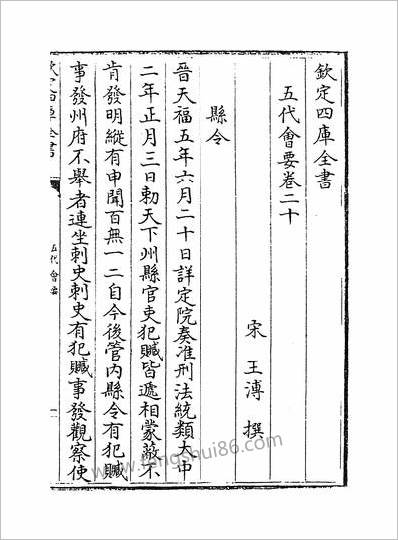 欽定四庫全書
五代會要卷二十
宋 王溥 撰
縣令
晉天福五年六月二十日詳定院奏准刑法統類大中
二年正月三日勅天下州縣官吏犯贓皆遞相蒙蔽不
肯發明縱有申聞百無一二自今後管内縣令有犯贓
事發州府不舉者連坐刺史刺史有犯贓事發觀察使
欽定四庫全書
五代會要
一